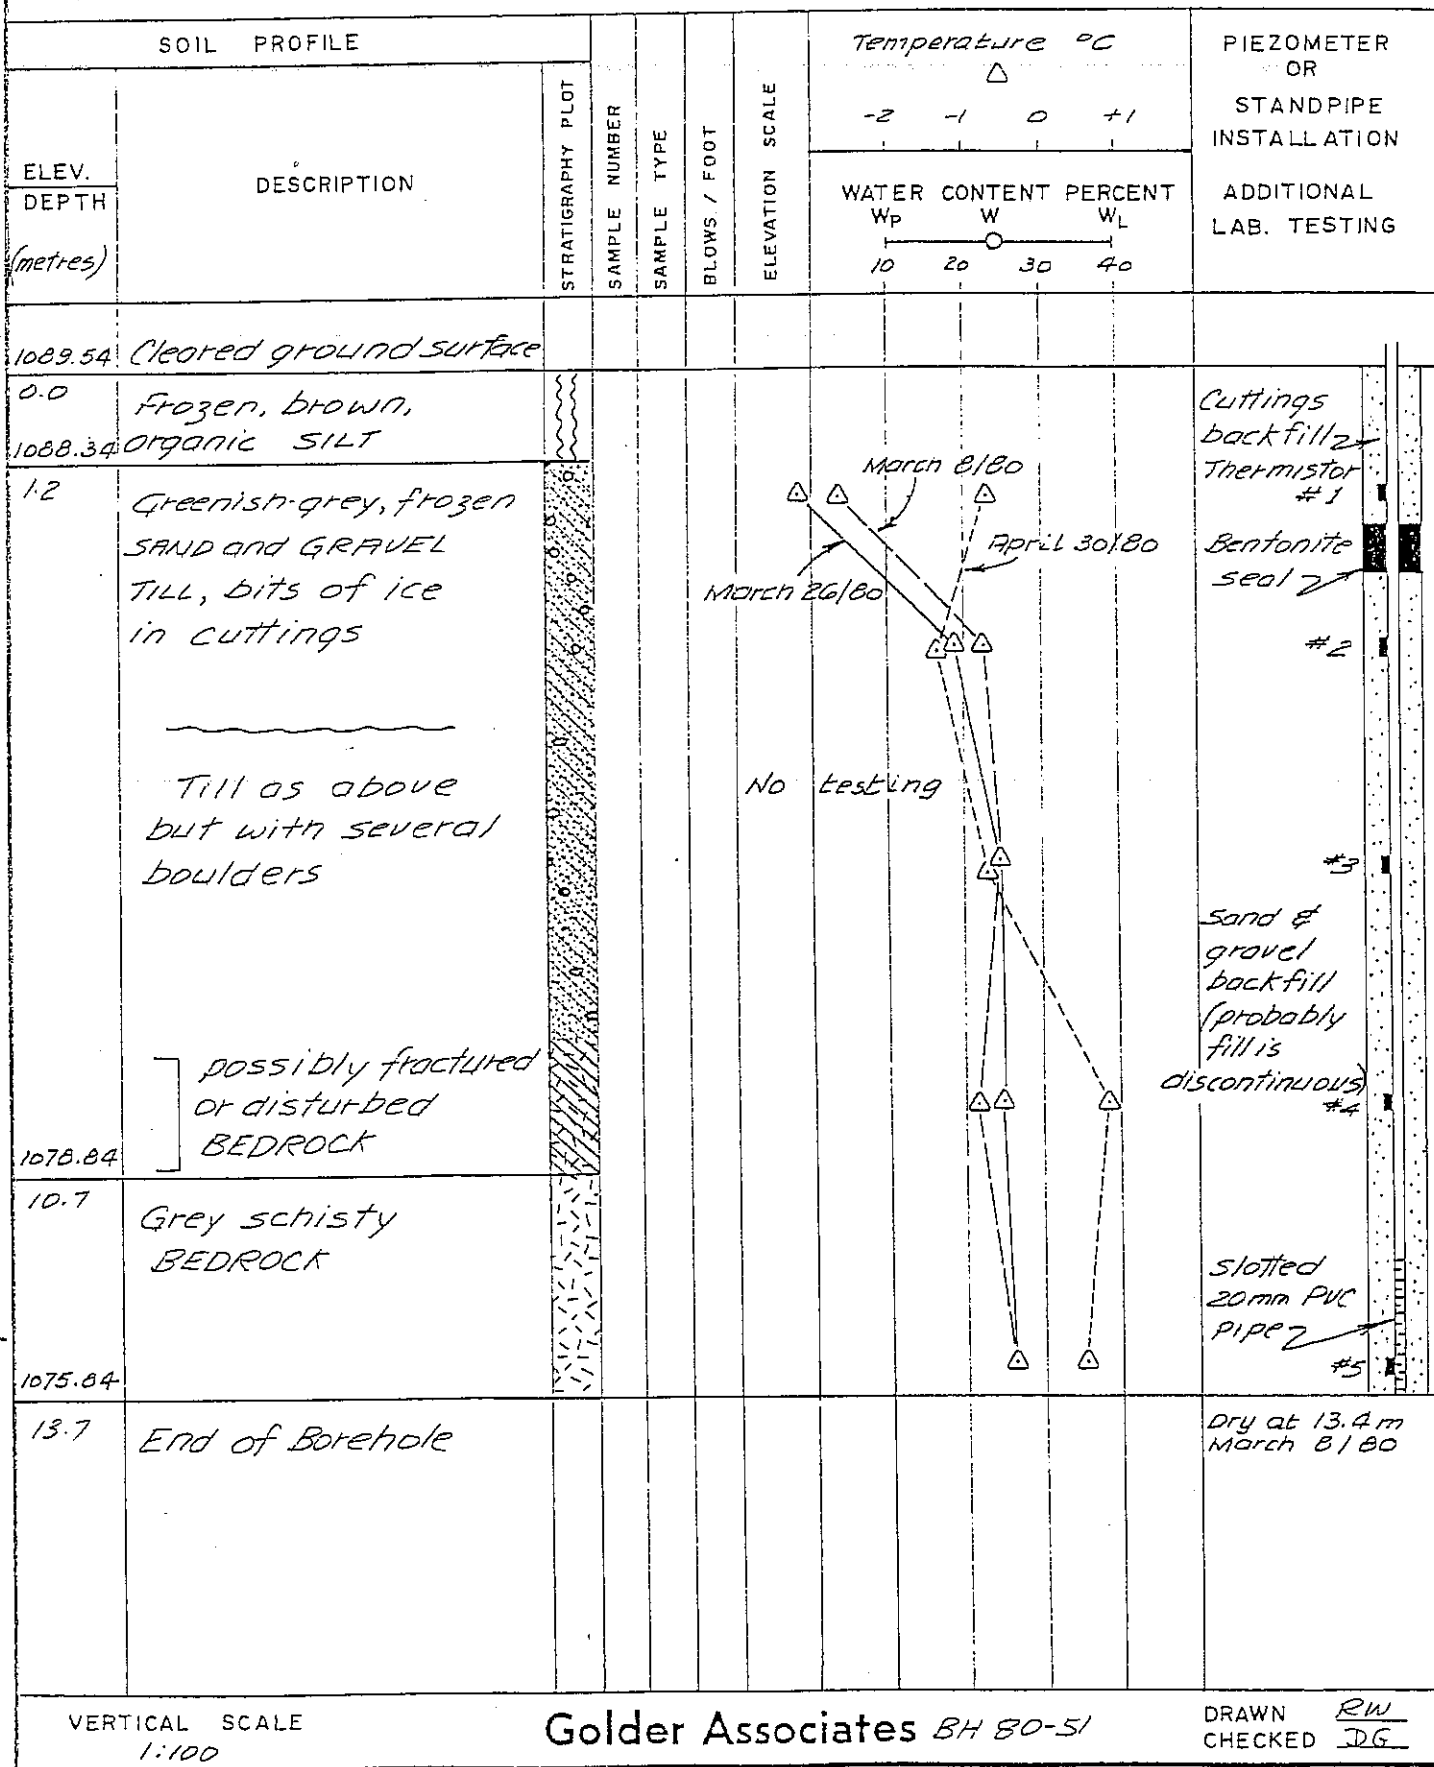 SOIL PROFILE
ELEV.
DEPTH
(metres)
DESCRIPTION
STRATIGRAPHY PLOT
SAMPLE NUMBER
SAMPLE TYPE
BLOWS / FOOT
ELEVATION SCALE
Temperature °C
-2 -1 0 +1
WATER CONTENT PERCENT
WP W WL
10 20 30 40
PIEZOMETER
OR
STANDPIPE
INSTALLATION
ADDITIONAL
LAB. TESTING
1089.54 Cleared ground surface
0.0
Frozen, brown,
1088.34 organic SILT
1.2
Greenish-grey, frozen
SAND and GRAVEL
TILL, bits of ice
in cuttings
Till as above
but with several
boulders
possibly fractured
or disturbed
BEDROCK
1078.84
10.7
Grey schisty
BEDROCK
1075.84
13.7
End of Borehole
March 8/80
April 30/80
March 26/80
No testing
Cuttings
backfill
Thermistor
#1
Bentonite
seal
#2
#3
Sand &
gravel
backfill
(probably
fill is
discontinuous)
#4
Slotted
20mm PVC
pipe
#5
Dry at 13.4m
March 8/80
VERTICAL SCALE
1:100
Golder Associates BH 80-51
DRAWN RW
CHECKED DG